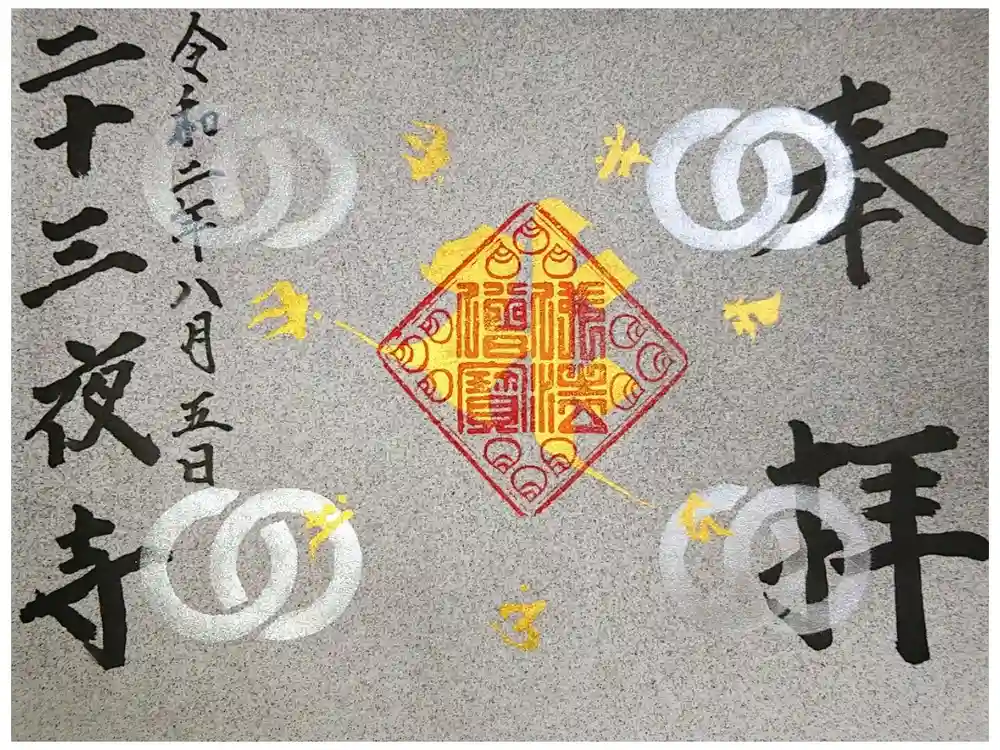 奉拝
佛法
僧寶
令和二年八月五日
二十三夜寺